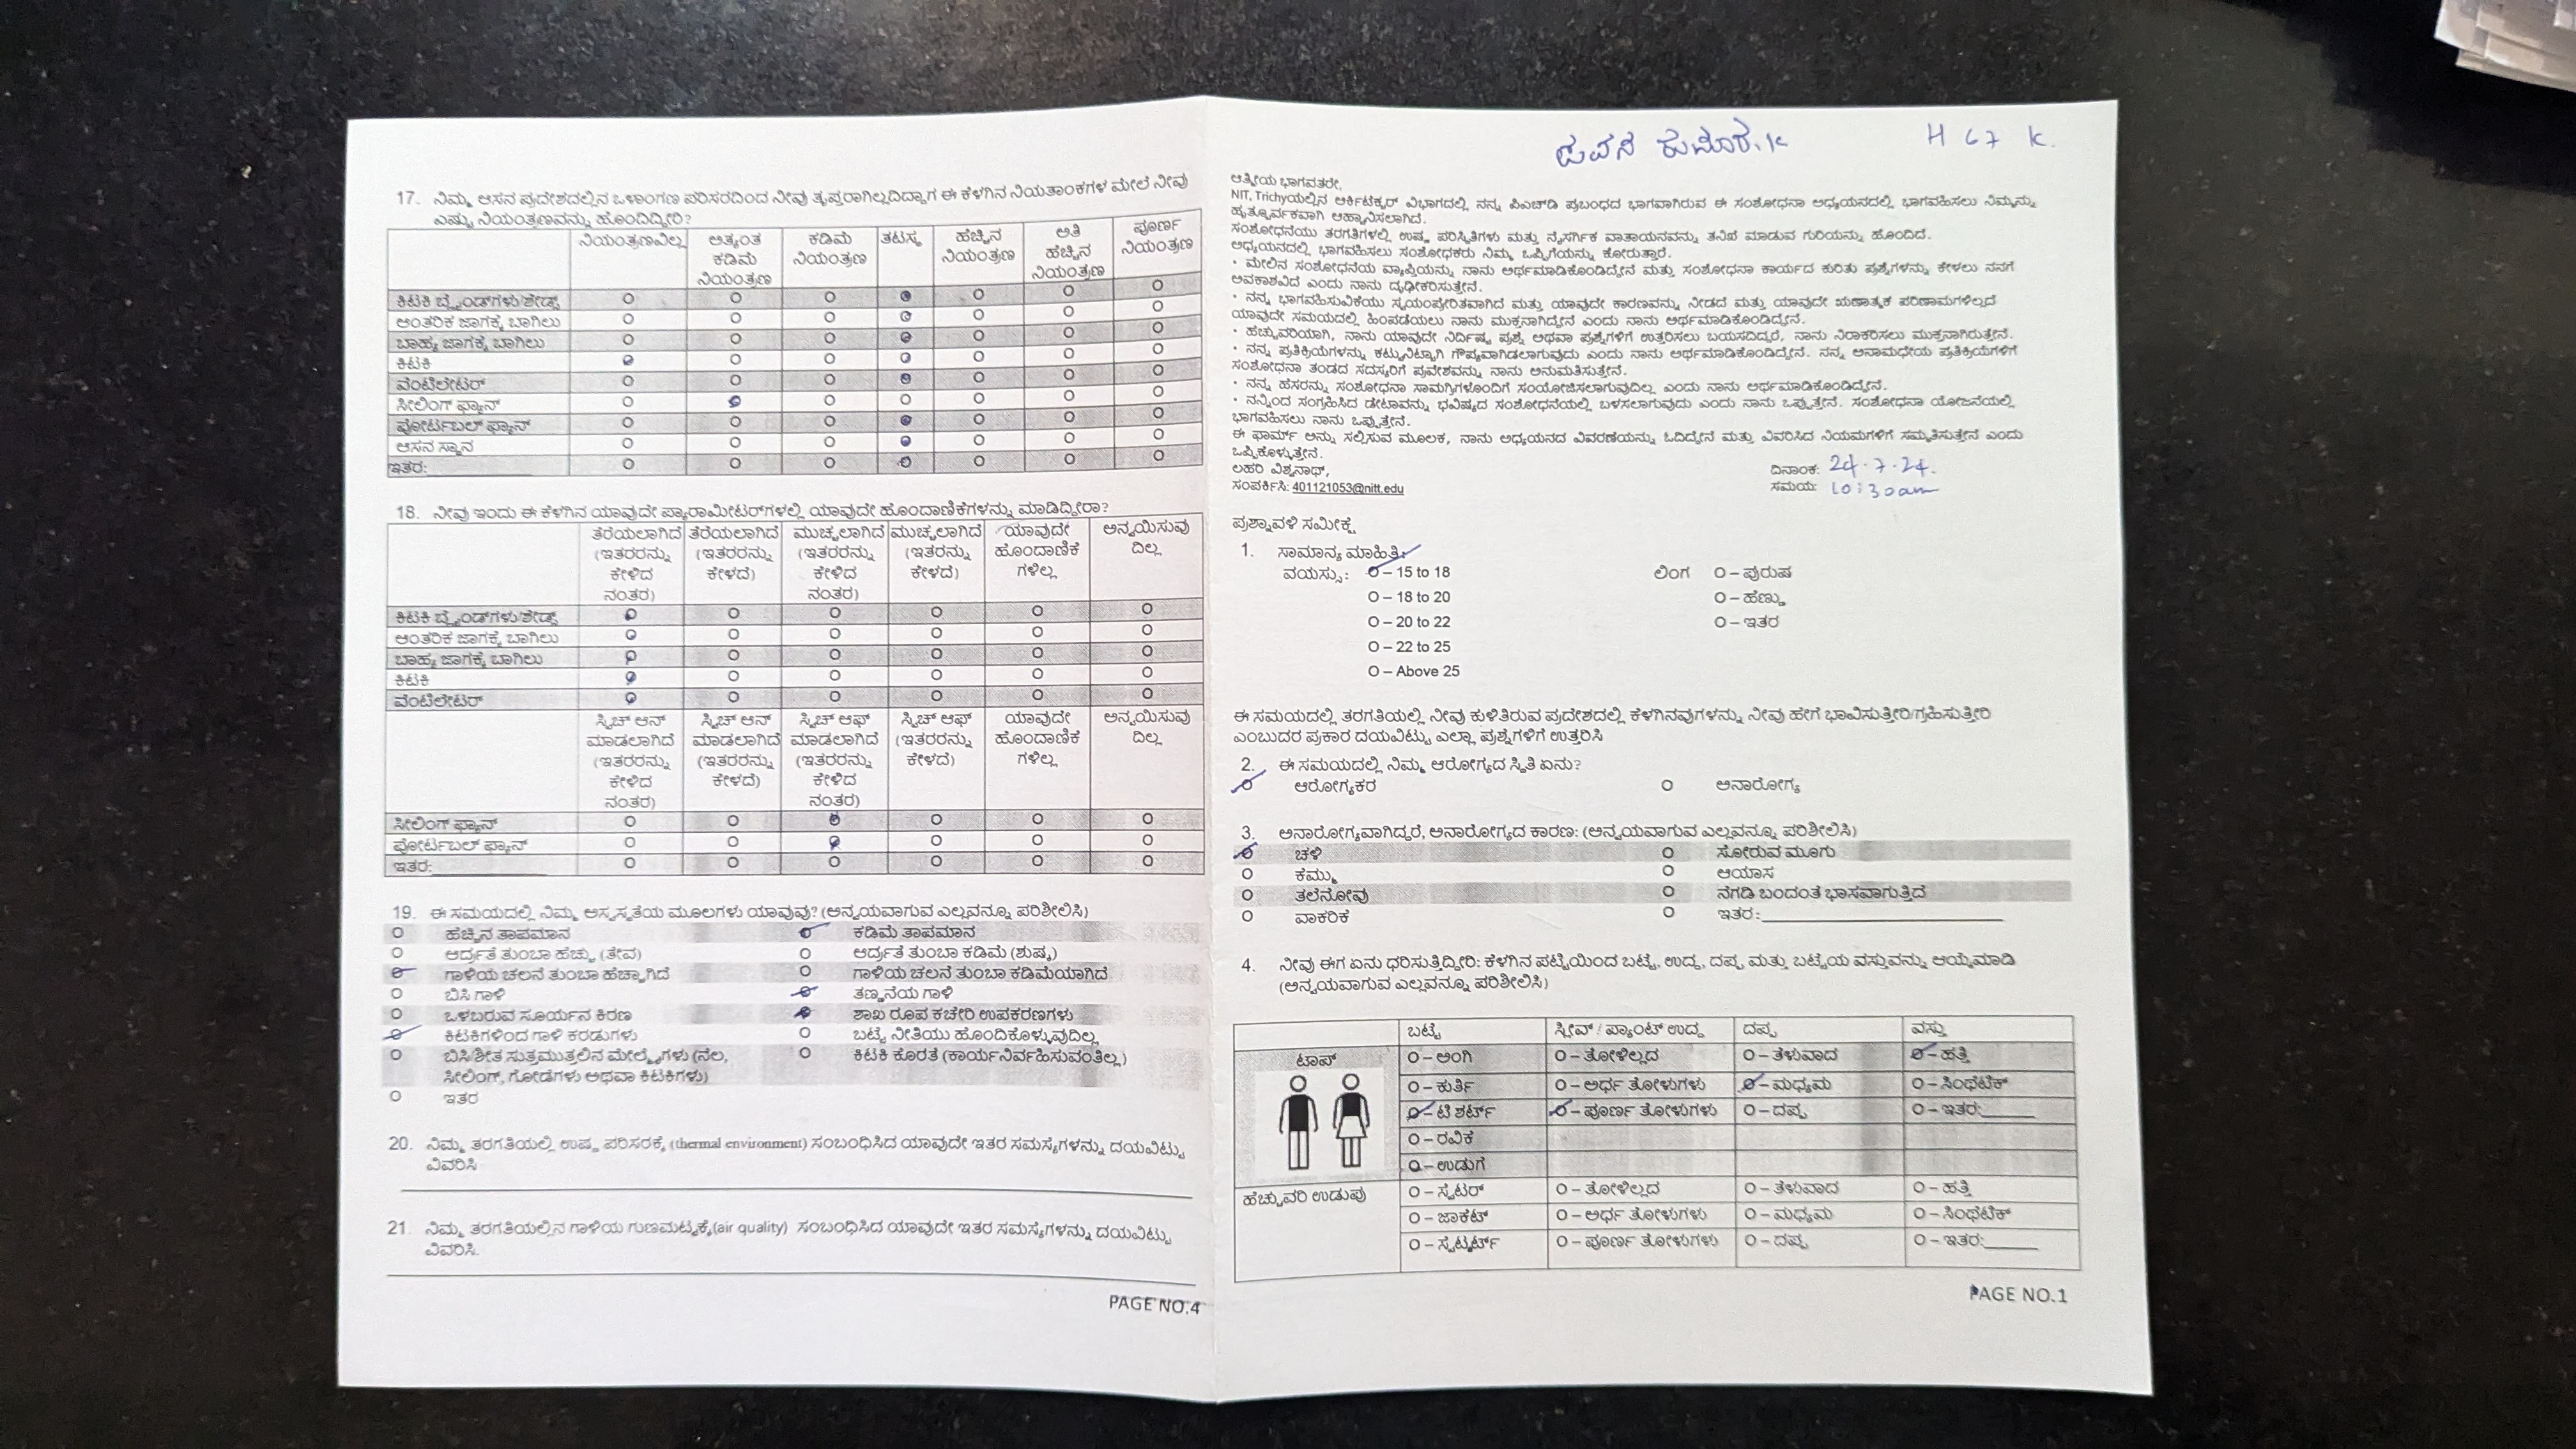 17. ನಿಮ್ಮ ಆಸನ ಪ್ರದೇಶದಲ್ಲಿನ ಒಳಾಂಗಣ ಪರಿಸರದಿಂದ ನೀವು ತೃಪ್ತರಾಗಿಲ್ಲದಿದ್ದಾಗ ಈ ಕೆಳಗಿನ ನಿಯತಾಂಕಗಳ ಮೇಲೆ ನೀವು
ಎಷ್ಟು ನಿಯಂತ್ರಣವನ್ನು ಹೊಂದಿದ್ದೀರಿ?
ನಿಯಂತ್ರಣವಿಲ್ಲ ಅತ್ಯಂತ ಕಡಿಮೆ ನಿಯಂತ್ರಣ ಕಡಿಮೆ ನಿಯಂತ್ರಣ ತಟಸ್ಥ ಹೆಚ್ಚಿನ ನಿಯಂತ್ರಣ ಅತಿ ಹೆಚ್ಚಿನ ನಿಯಂತ್ರಣ ಪೂರ್ಣ ನಿಯಂತ್ರಣ
ಕಿಟಕಿ ಬ್ಲೈಂಡ್‌ಗಳು/ಶೇಡ್ಸ್ O O O O O O O
ಆಂತರಿಕ ಜಾಗಕ್ಕೆ ಬಾಗಿಲು O O O O O O O
ಬಾಹ್ಯ ಜಾಗಕ್ಕೆ ಬಾಗಿಲು O O O O O O O
ಕಿಟಕಿ O O O O O O O
ವೆಂಟಿಲೇಟರ್ O O O O O O O
ಸೀಲಿಂಗ್ ಫ್ಯಾನ್ O O O O O O O
ಪೋರ್ಟಬಲ್ ಫ್ಯಾನ್ O O O O O O O
ಆಸನ ಸ್ಥಾನ O O O O O O O
ಇತರ: O O O O O O O
18. ನೀವು ಇಂದು ಈ ಕೆಳಗಿನ ಯಾವುದೇ ಪ್ಯಾರಾಮೀಟರ್‌ಗಳಲ್ಲಿ ಯಾವುದೇ ಹೊಂದಾಣಿಕೆಗಳನ್ನು ಮಾಡಿದ್ದೀರಾ?
ತೆರೆಯಲಾಗಿದೆ (ಇತರರನ್ನು ಕೇಳಿದ ನಂತರ) ತೆರೆಯಲಾಗಿದೆ (ಇತರರನ್ನು ಕೇಳದೆ) ಮುಚ್ಚಲಾಗಿದೆ (ಇತರರನ್ನು ಕೇಳಿದ ನಂತರ) ಮುಚ್ಚಲಾಗಿದೆ (ಇತರನ್ನು ಕೇಳದೆ) ಯಾವುದೇ ಹೊಂದಾಣಿಕೆ ಗಳಿಲ್ಲ ಅನ್ವಯಿಸುವು ದಿಲ್ಲ
ಕಿಟಕಿ ಬ್ಲೈಂಡ್‌ಗಳು/ಶೇಡ್ಸ್ O O O O O O
ಆಂತರಿಕ ಜಾಗಕ್ಕೆ ಬಾಗಿಲು O O O O O O
ಬಾಹ್ಯ ಜಾಗಕ್ಕೆ ಬಾಗಿಲು O O O O O O
ಕಿಟಕಿ O O O O O O
ವೆಂಟಿಲೇಟರ್ O O O O O O
ಸ್ವಿಚ್ ಆನ್ ಮಾಡಲಾಗಿದೆ (ಇತರರನ್ನು ಕೇಳಿದ ನಂತರ) ಸ್ವಿಚ್ ಆನ್ ಮಾಡಲಾಗಿದೆ (ಇತರರನ್ನು ಕೇಳದೆ) ಸ್ವಿಚ್ ಆಫ್ ಮಾಡಲಾಗಿದೆ (ಇತರರನ್ನು ಕೇಳಿದ ನಂತರ) ಸ್ವಿಚ್ ಆಫ್ (ಇತರರನ್ನು ಕೇಳದೆ) ಯಾವುದೇ ಹೊಂದಾಣಿಕೆ ಗಳಿಲ್ಲ ಅನ್ವಯಿಸುವು ದಿಲ್ಲ
ಸೀಲಿಂಗ್ ಫ್ಯಾನ್ O O O O O O
ಪೋರ್ಟಬಲ್ ಫ್ಯಾನ್ O O O O O O
ಇತರ: O O O O O O
19. ಈ ಸಮಯದಲ್ಲಿ ನಿಮ್ಮ ಅಸ್ವಸ್ಥತೆಯ ಮೂಲಗಳು ಯಾವುವು? (ಅನ್ವಯವಾಗುವ ಎಲ್ಲವನ್ನೂ ಪರಿಶೀಲಿಸಿ)
O ಹೆಚ್ಚಿನ ತಾಪಮಾನ O ಕಡಿಮೆ ತಾಪಮಾನ
O ಆರ್ದ್ರತೆ ತುಂಬಾ ಹೆಚ್ಚು (ತೇವ) O ಆರ್ದ್ರತೆ ತುಂಬಾ ಕಡಿಮೆ (ಶುಷ್ಕ)
O ಗಾಳಿಯ ಚಲನೆ ತುಂಬಾ ಹೆಚ್ಚಾಗಿದೆ O ಗಾಳಿಯ ಚಲನೆ ತುಂಬಾ ಕಡಿಮೆಯಾಗಿದೆ
O ಬಿಸಿ ಗಾಳಿ O ತಣ್ಣನೆಯ ಗಾಳಿ
O ಒಳಬರುವ ಸೂರ್ಯನ ಕಿರಣ O ಶಾಖ ರೂಪ ಕಚೇರಿ ಉಪಕರಣಗಳು
O ಕಿಟಕಿಗಳಿಂದ ಗಾಳಿ ಕರಡುಗಳು O ಬಟ್ಟೆ ನೀತಿಯು ಹೊಂದಿಕೊಳ್ಳುವುದಿಲ್ಲ
O ಬಿಸಿ/ಶೀತ ಸುತ್ತಮುತ್ತಲಿನ ಮೇಲ್ಮೈಗಳು (ನೆಲ, O ಕಿಟಕಿ ಕೊರತೆ (ಕಾರ್ಯನಿರ್ವಹಿಸುವಂತಿಲ್ಲ)
ಸೀಲಿಂಗ್, ಗೋಡೆಗಳು ಅಥವಾ ಕಿಟಕಿಗಳು)
O ಇತರ
20. ನಿಮ್ಮ ತರಗತಿಯಲ್ಲಿ ಉಷ್ಣ ಪರಿಸರಕ್ಕೆ (thermal environment) ಸಂಬಂಧಿಸಿದ ಯಾವುದೇ ಇತರ ಸಮಸ್ಯೆಗಳನ್ನು ದಯವಿಟ್ಟು
ವಿವರಿಸಿ
21. ನಿಮ್ಮ ತರಗತಿಯಲ್ಲಿನ ಗಾಳಿಯ ಗುಣಮಟ್ಟಕ್ಕೆ(air quality) ಸಂಬಂಧಿಸಿದ ಯಾವುದೇ ಇತರ ಸಮಸ್ಯೆಗಳನ್ನು ದಯವಿಟ್ಟು
ವಿವರಿಸಿ.
PAGE NO.4
ಪವನ ಕುಮಾರ.k H 67 K.
ಆತ್ಮೀಯ ಭಾಗವತರೇ,
NIT, Trichyಯಲ್ಲಿನ ಆರ್ಕಿಟೆಕ್ಚರ್ ವಿಭಾಗದಲ್ಲಿ ನನ್ನ ಪಿಎಚ್‌ಡಿ ಪ್ರಬಂಧದ ಭಾಗವಾಗಿರುವ ಈ ಸಂಶೋಧನಾ ಅಧ್ಯಯನದಲ್ಲಿ ಭಾಗವಹಿಸಲು ನಿಮ್ಮನ್ನು
ಹೃತ್ಪೂರ್ವಕವಾಗಿ ಆಹ್ವಾನಿಸಲಾಗಿದೆ.
ಸಂಶೋಧನೆಯು ತರಗತಿಗಳಲ್ಲಿ ಉಷ್ಣ ಪರಿಸ್ಥಿತಿಗಳು ಮತ್ತು ನೈಸರ್ಗಿಕ ವಾತಾಯನವನ್ನು ತನಿಖೆ ಮಾಡುವ ಗುರಿಯನ್ನು ಹೊಂದಿದೆ.
ಅಧ್ಯಯನದಲ್ಲಿ ಭಾಗವಹಿಸಲು ಸಂಶೋಧಕರು ನಿಮ್ಮ ಒಪ್ಪಿಗೆಯನ್ನು ಕೋರುತ್ತಾರೆ.
• ಮೇಲಿನ ಸಂಶೋಧನೆಯ ವ್ಯಾಪ್ತಿಯನ್ನು ನಾನು ಅರ್ಥಮಾಡಿಕೊಂಡಿದ್ದೇನೆ ಮತ್ತು ಸಂಶೋಧನಾ ಕಾರ್ಯದ ಕುರಿತು ಪ್ರಶ್ನೆಗಳನ್ನು ಕೇಳಲು ನನಗೆ
ಅವಕಾಶವಿದೆ ಎಂದು ನಾನು ದೃಢೀಕರಿಸುತ್ತೇನೆ.
• ನನ್ನ ಭಾಗವಹಿಸುವಿಕೆಯು ಸ್ವಯಂಪ್ರೇರಿತವಾಗಿದೆ ಮತ್ತು ಯಾವುದೇ ಕಾರಣವನ್ನು ನೀಡದೆ ಮತ್ತು ಯಾವುದೇ ಋಣಾತ್ಮಕ ಪರಿಣಾಮಗಳಿಲ್ಲದೆ
ಯಾವುದೇ ಸಮಯದಲ್ಲಿ ಹಿಂಪಡೆಯಲು ನಾನು ಮುಕ್ತನಾಗಿದ್ದೇನೆ ಎಂದು ನಾನು ಅರ್ಥಮಾಡಿಕೊಂಡಿದ್ದೇನೆ.
• ಹೆಚ್ಚುವರಿಯಾಗಿ, ನಾನು ಯಾವುದೇ ನಿರ್ದಿಷ್ಟ ಪ್ರಶ್ನೆ ಅಥವಾ ಪ್ರಶ್ನೆಗಳಿಗೆ ಉತ್ತರಿಸಲು ಬಯಸದಿದ್ದರೆ, ನಾನು ನಿರಾಕರಿಸಲು ಮುಕ್ತನಾಗಿರುತ್ತೇನೆ.
• ನನ್ನ ಪ್ರತಿಕ್ರಿಯೆಗಳನ್ನು ಕಟ್ಟುನಿಟ್ಟಾಗಿ ಗೌಪ್ಯವಾಗಿಡಲಾಗುವುದು ಎಂದು ನಾನು ಅರ್ಥಮಾಡಿಕೊಂಡಿದ್ದೇನೆ. ನನ್ನ ಅನಾಮಧೇಯ ಪ್ರತಿಕ್ರಿಯೆಗಳಿಗೆ
ಸಂಶೋಧನಾ ತಂಡದ ಸದಸ್ಯರಿಗೆ ಪ್ರವೇಶವನ್ನು ನಾನು ಅನುಮತಿಸುತ್ತೇನೆ.
• ನನ್ನ ಹೆಸರನ್ನು ಸಂಶೋಧನಾ ಸಾಮಗ್ರಿಗಳೊಂದಿಗೆ ಸಂಯೋಜಿಸಲಾಗುವುದಿಲ್ಲ ಎಂದು ನಾನು ಅರ್ಥಮಾಡಿಕೊಂಡಿದ್ದೇನೆ.
• ನನ್ನಿಂದ ಸಂಗ್ರಹಿಸಿದ ಡೇಟಾವನ್ನು ಭವಿಷ್ಯದ ಸಂಶೋಧನೆಯಲ್ಲಿ ಬಳಸಲಾಗುವುದು ಎಂದು ನಾನು ಒಪ್ಪುತ್ತೇನೆ. ಸಂಶೋಧನಾ ಯೋಜನೆಯಲ್ಲಿ
ಭಾಗವಹಿಸಲು ನಾನು ಒಪ್ಪುತ್ತೇನೆ.
ಈ ಫಾರ್ಮ್ ಅನ್ನು ಸಲ್ಲಿಸುವ ಮೂಲಕ, ನಾನು ಅಧ್ಯಯನದ ವಿವರಣೆಯನ್ನು ಓದಿದ್ದೇನೆ ಮತ್ತು ವಿವರಿಸಿದ ನಿಯಮಗಳಿಗೆ ಸಮ್ಮತಿಸುತ್ತೇನೆ ಎಂದು
ಒಪ್ಪಿಕೊಳ್ಳುತ್ತೇನೆ.
ಲಹರಿ ವಿಶ್ವನಾಥ್, ದಿನಾಂಕ: 24.7.24.
ಸಂಪರ್ಕಿಸಿ: 401121053@nitt.edu ಸಮಯ: 10:30am
ಪ್ರಶ್ನಾವಳಿ ಸಮೀಕ್ಷೆ
1. ಸಾಮಾನ್ಯ ಮಾಹಿತಿ:
ವಯಸ್ಸು: O – 15 to 18 ಲಿಂಗ O – ಪುರುಷ
O – 18 to 20 O – ಹೆಣ್ಣು
O – 20 to 22 O – ಇತರ
O – 22 to 25
O – Above 25
ಈ ಸಮಯದಲ್ಲಿ ತರಗತಿಯಲ್ಲಿ ನೀವು ಕುಳಿತಿರುವ ಪ್ರದೇಶದಲ್ಲಿ ಕೆಳಗಿನವುಗಳನ್ನು ನೀವು ಹೇಗೆ ಭಾವಿಸುತ್ತೀರಿ/ಗ್ರಹಿಸುತ್ತೀರಿ
ಎಂಬುದರ ಪ್ರಕಾರ ದಯವಿಟ್ಟು ಎಲ್ಲಾ ಪ್ರಶ್ನೆಗಳಿಗೆ ಉತ್ತರಿಸಿ
2. ಈ ಸಮಯದಲ್ಲಿ ನಿಮ್ಮ ಆರೋಗ್ಯದ ಸ್ಥಿತಿ ಏನು?
O ಆರೋಗ್ಯಕರ O ಅನಾರೋಗ್ಯ
3. ಅನಾರೋಗ್ಯವಾಗಿದ್ದರೆ, ಅನಾರೋಗ್ಯದ ಕಾರಣ: (ಅನ್ವಯವಾಗುವ ಎಲ್ಲವನ್ನೂ ಪರಿಶೀಲಿಸಿ)
O ಚಳಿ O ಸೋರುವ ಮೂಗು
O ಕೆಮ್ಮು O ಆಯಾಸ
O ತಲೆನೋವು O ನೆಗಡಿ ಬಂದಂತೆ ಭಾಸವಾಗುತ್ತಿದೆ
O ವಾಕರಿಕೆ O ಇತರ:
4. ನೀವು ಈಗ ಏನು ಧರಿಸುತ್ತಿದ್ದೀರಿ: ಕೆಳಗಿನ ಪಟ್ಟಿಯಿಂದ ಬಟ್ಟೆ, ಉದ್ದ, ದಪ್ಪ ಮತ್ತು ಬಟ್ಟೆಯ ವಸ್ತುವನ್ನು ಆಯ್ಕೆಮಾಡಿ
(ಅನ್ವಯವಾಗುವ ಎಲ್ಲವನ್ನೂ ಪರಿಶೀಲಿಸಿ)
ಬಟ್ಟೆ ಸ್ಲೀವ್ / ಪ್ಯಾಂಟ್ ಉದ್ದ ದಪ್ಪ ವಸ್ತು
ಟಾಪ್ O – ಅಂಗಿ O – ತೋಳಿಲ್ಲದ O – ತೆಳುವಾದ O – ಹತ್ತಿ
O – ಕುರ್ತಿ O – ಅರ್ಧ ತೋಳುಗಳು O – ಮಧ್ಯಮ O – ಸಿಂಥೆಟಿಕ್
O – ಟಿ ಶರ್ಟ್ O – ಪೂರ್ಣ ತೋಳುಗಳು O – ದಪ್ಪ O – ಇತರ:
O – ರವಿಕೆ
O – ಉಡುಗೆ
ಹೆಚ್ಚುವರಿ ಉಡುಪು O – ಸ್ವೆಟರ್ O – ತೋಳಿಲ್ಲದ O – ತೆಳುವಾದ O – ಹತ್ತಿ
O – ಜಾಕೆಟ್ O – ಅರ್ಧ ತೋಳುಗಳು O – ಮಧ್ಯಮ O – ಸಿಂಥೆಟಿಕ್
O – ಸ್ವೆಟ್ಶರ್ಟ್ O – ಪೂರ್ಣ ತೋಳುಗಳು O – ದಪ್ಪ O – ಇತರ:
PAGE NO.1